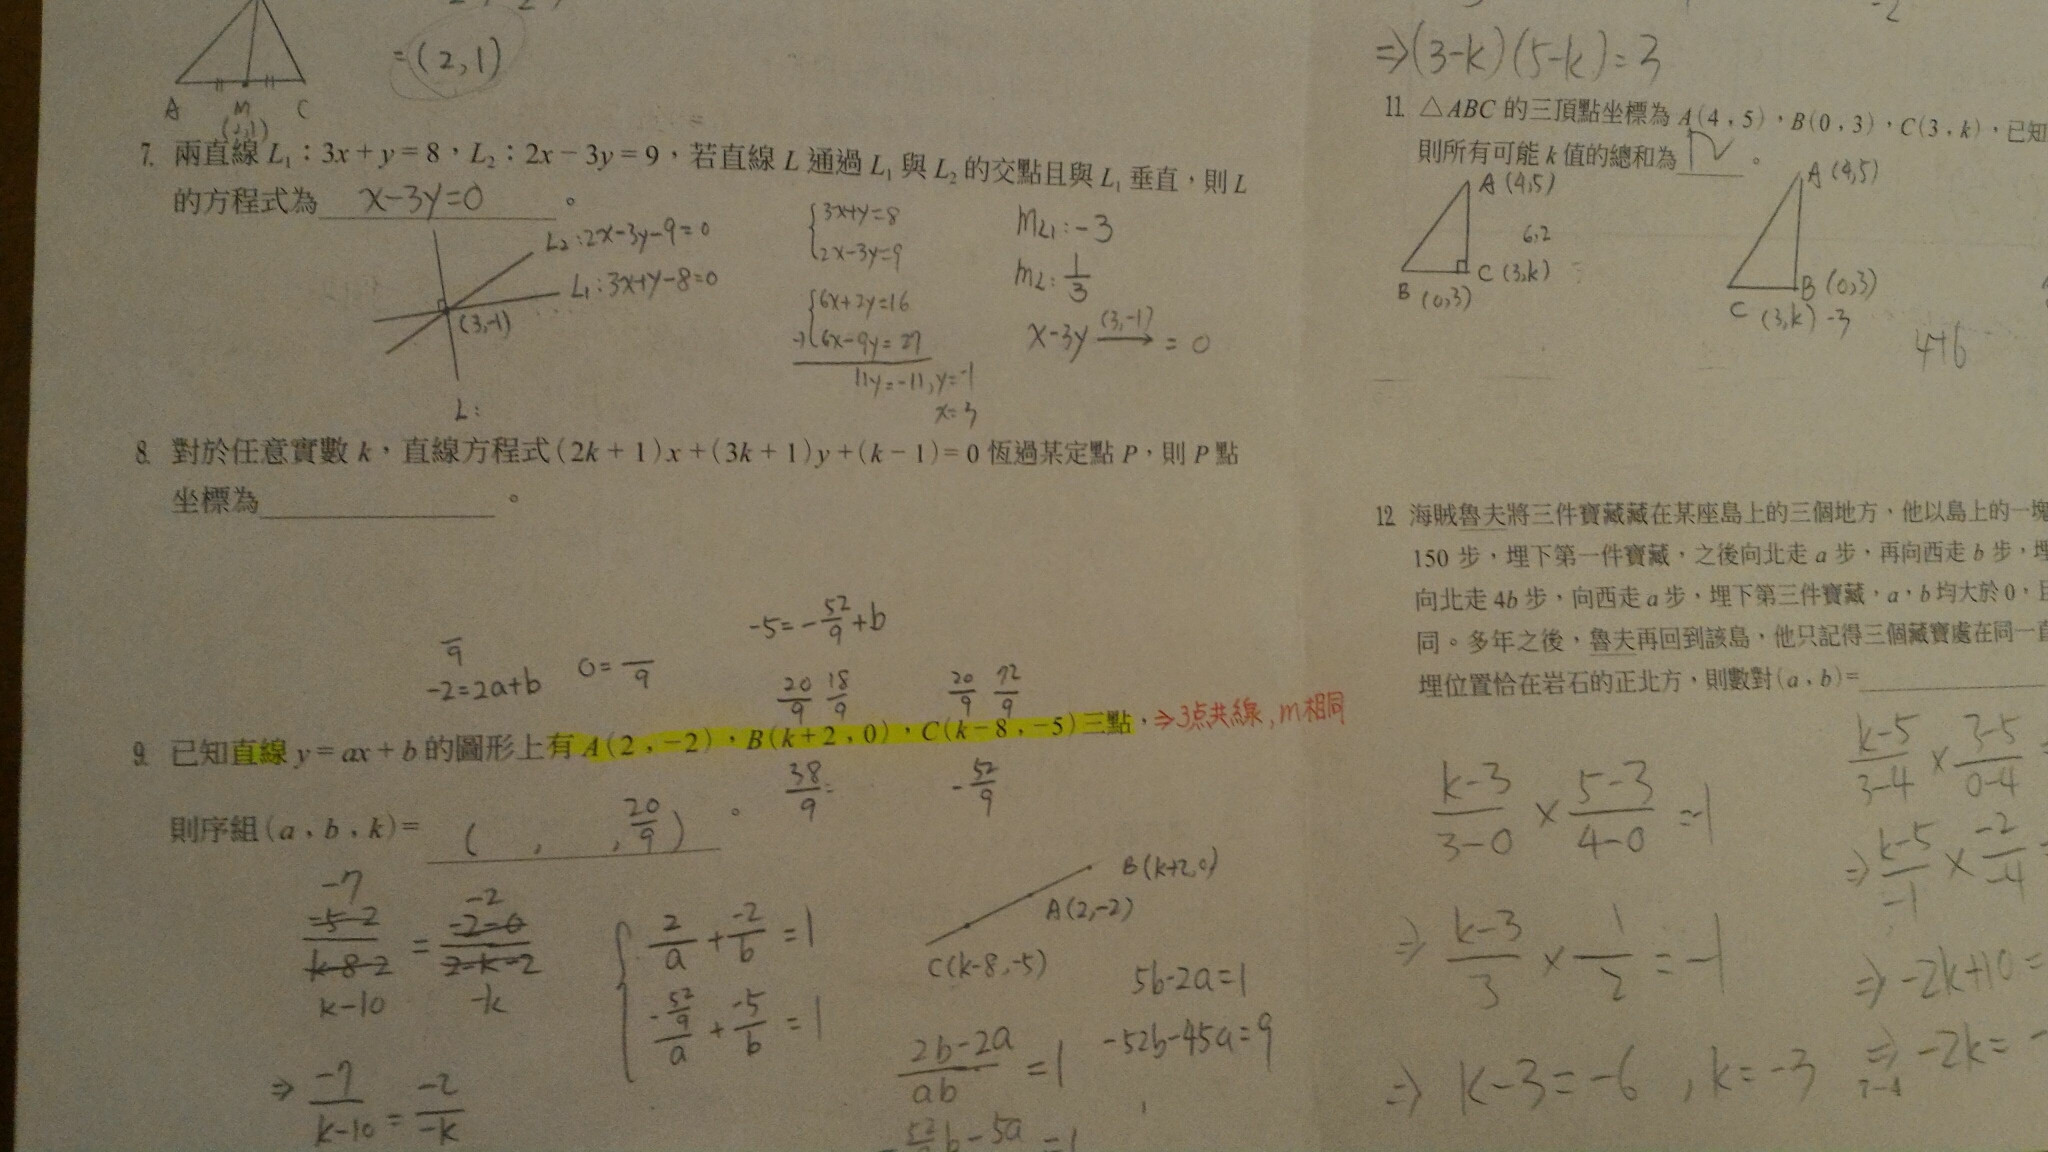 A M C
=(2,1)
7. 兩直線 L₁：3x+y=8，L₂：2x-3y=9，若直線 L 通過 L₁ 與 L₂ 的交點且與 L₁ 垂直，則 L
的方程式為 x-3y=0 。
L₂:2x-3y-9=0
L₁:3x+y-8=0
(3,-1)
L:
3x+y=8
2x-3y=9
6x+2y=16
-) 6x-9y=27
11y=-11, y=-1
x=3
mL₁:-3
mL:1/3
x-3y (3,-1)→ =0
8. 對於任意實數 k，直線方程式(2k+1)x+(3k+1)y+(k-1)=0 恆過某定點 P，則 P 點
坐標為 。
-5=-52/9+b
-2=2a+b
20/9 18/9
20/9 72/9
9. 已知直線 y=ax+b 的圖形上有 A(2，-2)，B(k+2，0)，C(k-8，-5)三點，⇒3点共線, m相同
38/9=
-52/9
則序組(a，b，k)= ( , , 20/9) 。
-7
-5-2/k-8-2 = -2-0/2-k-2
-2
k-10
-k
⇒ -7/k-10 = -2/-k
2/a + -2/b = 1
-52/9/a + -5/b = 1
B(k+2,0)
A(2,-2)
C(k-8,-5)
5b-2a=1
-52b-45a=9
2b-2a/ab =1
⇒(3-k)(5-k)=3
11. △ABC 的三頂點坐標為 A(4，5)，B(0，3)，C(3，k)，已知
則所有可能 k 值的總和為 。
A (4,5)
6,2
C (3,k)
B (0,3)
A (4,5)
B (0,3)
C (3,k) -3
4+6
12. 海賊魯夫將三件寶藏藏在某座島上的三個地方，他以島上的一塊
150 步，埋下第一件寶藏，之後向北走 a 步，再向西走 b 步，埋
向北走 4b 步，向西走 a 步，埋下第三件寶藏，a，b 均大於 0，且
同。多年之後，魯夫再回到該島，他只記得三個藏寶處在同一直
埋位置恰在岩石的正北方，則數對(a，b)=
k-3/3-0 × 5-3/4-0 =-1
⇒ k-3/3 × 1/2 = -1
⇒ k-3=-6, k=-3
k-5/3-4 × 3-5/0-4 =
⇒ k-5/-1 × -2/-4 =
⇒ -2k+10=
⇒ -2k=